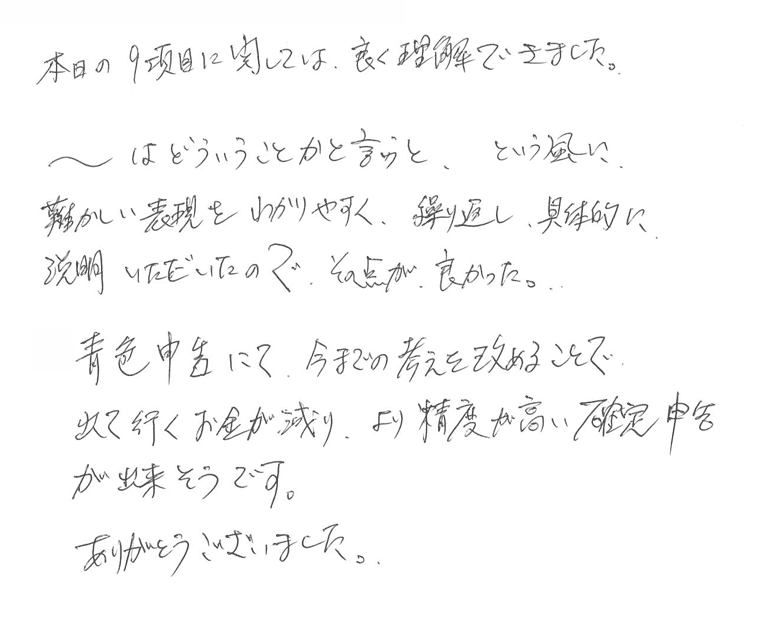 本日の9項目に関しては、良く理解できました。
〜はどういうことかと言うと、という風に、
難かしい表現をわかりやすく、繰り返し、具体的に
説明いただいたので、その点が、良かった。
青色申告にて、今までの考えを改めることで
出て行くお金が減り、より精度が高い確定申告
が出来そうです。
ありがとうございました。